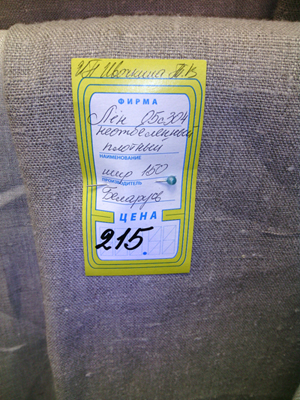 ФИРМА
Лён 05с304
неотбеленный
плотный
НАИМЕНОВАНИЕ
шир 150
ПРОИЗВОДИТЕЛЬ
Беларусь
ЦЕНА
215